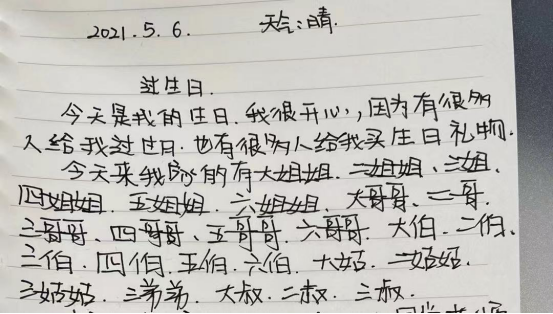 2021.5.6. 天气:晴.
过生日.
今天是我的生日.我很开心,因为有很多
人给我过过日.也有很多人给我买生日礼物.
今天来我家的有大姐姐.二姐姐、三姐、
四姐姐.五姐姐.六姐姐.大哥哥、二哥.
三哥哥、四哥哥、五哥哥.六哥哥.大伯.二伯、
三伯.四伯.五伯.六伯.大姑.二姑姑.
3姑姑.三弟弟.大叔.二叔.三叔.